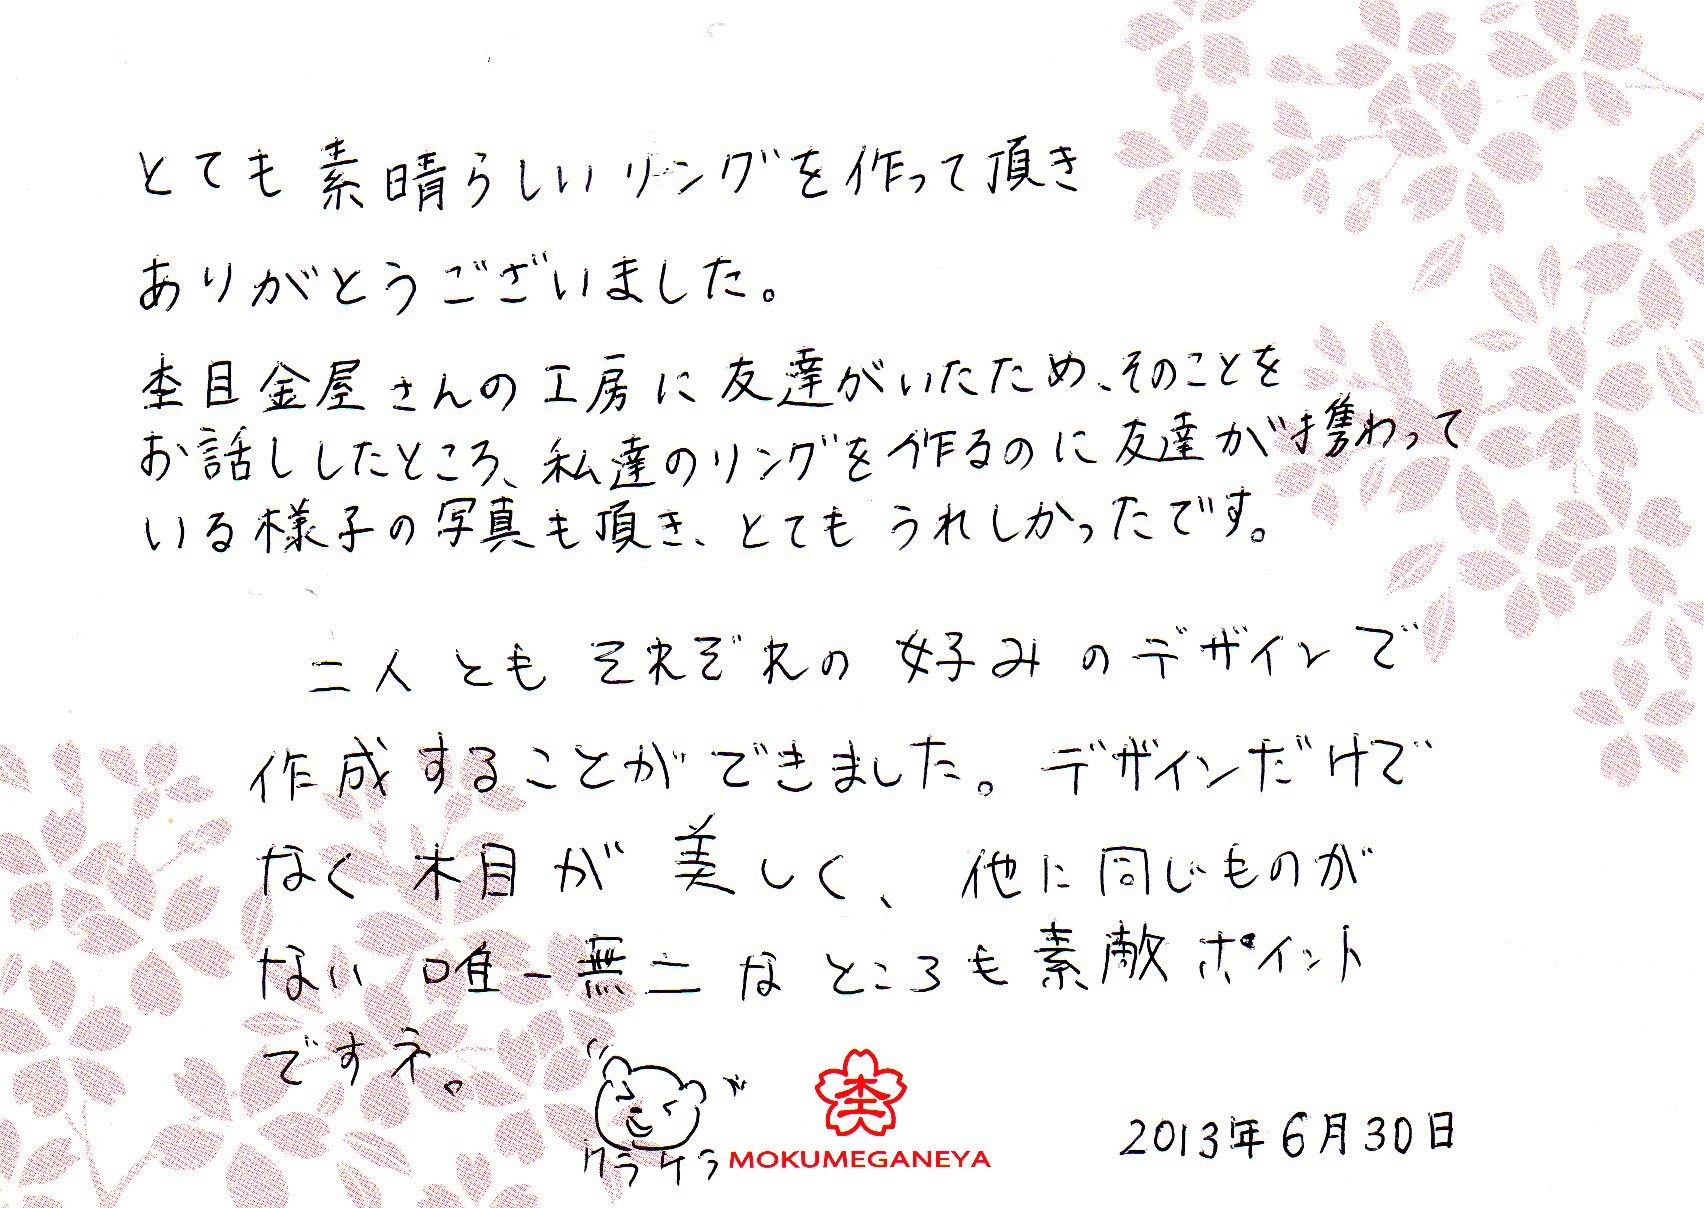 とても素晴らしいリングを作って頂き
ありがとうございました。
杢目金屋さんの工房に友達がいたため、そのことを
お話ししたところ、私達のリングを作るのに友達が携わって
いる様子の写真も頂き、とてもうれしかったです。
二人ともそれぞれの好みのデザインで
作成することができました。デザインだけで
なく木目が美しく、他に同じものが
ない唯一無二なところも素敵ポイント
ですネ。
杢
クラケラ
MOKUMEGANEYA
2013年6月30日